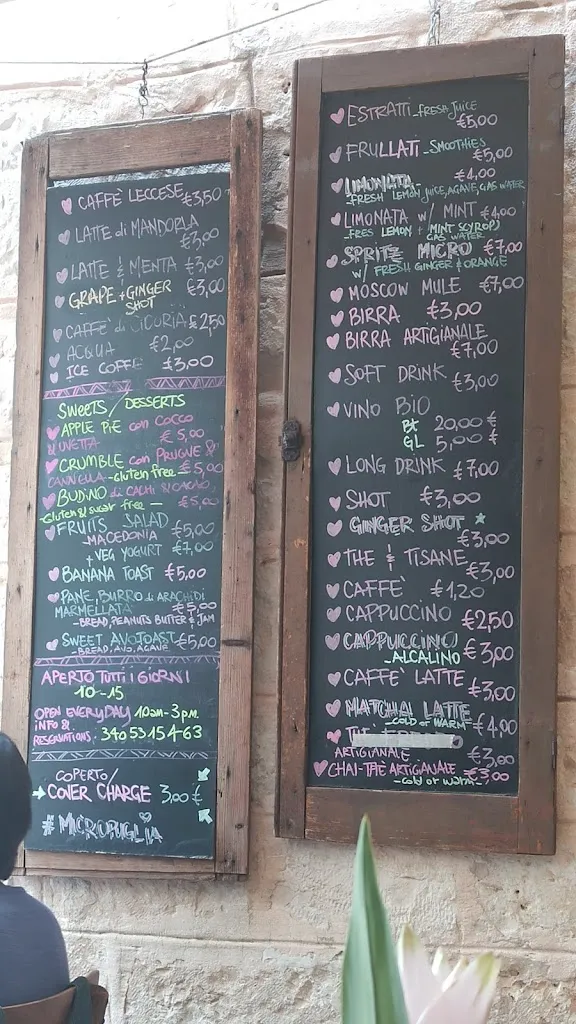 CAFFÈ LECCESE €3,50
LATTE di MANDORLA
€3,00
LATTE & MENTA €3,00
GRAPE + GINGER €3,00
SHOT
CAFFÈ di CICORIA €2,50
ACQUA €2,00
ICE COFFE €3,00
SWEETS/DESSERTS
APPLE PIE con COCCO
& UVETTA €5,00
CRUMBLE con PRUGNE &
CANNELLA -Gluten free- €5,00
BUDINO di CACHI & CACAO
-Gluten & sugar free- €5,00
FRUITS SALAD €5,00
_MACEDONIA
+ VEG YOGURT €7,00
BANANA TOAST €5,00
PANE, BURRO di ARACHIDI
MARMELLATA €5,00
-BREAD, PEANUTS BUTTER & JAM
SWEET AVOTOAST €5,00
-BREAD, AVO, AGAVE
APERTO TUTTI i GIORNI
10-15
OPEN EVERYDAY 10am-3pm
INFO &
RESERVATIONS: 340 53 15 4 63
COPERTO/
→COVER CHARGE 3,00 €
#MICROPUGLIA
ESTRATTI _FRESH JUICE
€5,00
FRULLATI _SMOOTHIES
€5,00
LIMONATA- €4,00
_FRESH LEMON JUICE, AGAVE, GAS WATER
LIMONATA w/ MINT €4,00
_FRES LEMON + MINT SCYROP,
GAS WATER
SPRITZ MICRO €7,00
W/ FRESH GINGER & ORANGE
MOSCOW MULE €7,00
BIRRA €3,00
BIRRA ARTIGIANALE
€7,00
SOFT DRINK €3,00
VINO BIO
Bt 20,00 €
GL 5,00 €
LONG DRINK €7,00
SHOT €3,00
GINGER SHOT
€3,00
THE & TISANE
€3,00
CAFFÈ €1,20
CAPPUCCINO €2,50
CAPPUCCINO
_ALCALINO €3,00
CAFFÈ LATTE
€3,00
MATCHA LATTE
_COLD OR WARM €4,00
THE
ARTIGIANALE €3,00
CHAI-THE ARTIGIANALE €3,00
-COLD OR WARM